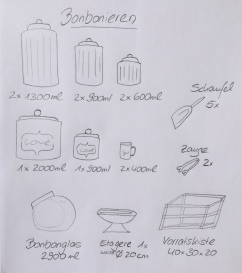 Bonbonieren
2x 1300ml 2x 900ml 2x 600ml
Schaufel
5x
Love
Love
1x 2000ml 1x 900ml 2x 400ml
Zange
2x
Bonbonglas
2900ml
Etagere 1x
weiß Ø 20cm
Vorratskiste
40x30x20